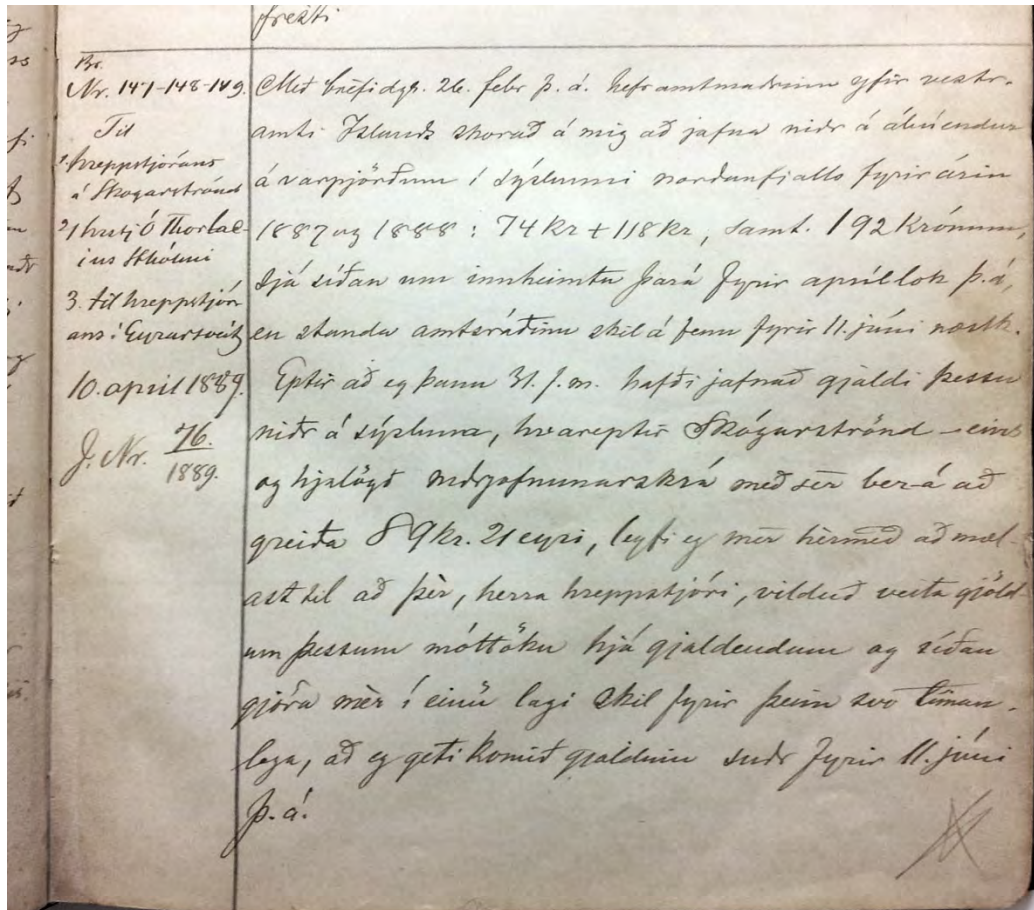 fresti
Br.
Nr. 147-148-149.
Til
1. hreppstjórans
á Skogarströnd
2) hrstj Ó Thorlac-
ius Sthólmi
3. til hreppstjór
ans í Eyrarsveit
10. april 1889.
J. Nr. 76.
1889.
Með bréfi dgs. 26. febr þ. á. hefr amtmaðrinn yfir vestr-
amti Islands skorað á mig að jafna niðr á ábúendur
á varpjörðum í sýslunni norðanfjalls fyrir árin
1887 og 1888: 74 kr + 118 kr, samt. 192 krónum,
sjá síðan um innheimtu þará fyrir apríllok þ. á,
en standa amtsráðinu skil á fenu fyrir 11. júní næstk.
Eptir að eg þann 31. f. m. hafði jafnað gjaldi þessu
niðr á sýsluna, hvareptir Skógarströnd - eins
og hjalögð niðrjofnunarskrá með sér ber - á að
greiða 89 kr. 21 eyri, leyfi eg mér hérmeð að mæl-
ast til að þér, herra hreppstjóri, vilduð veita gjöld-
um þessum móttöku hjá gjaldendum og síðan
gjöra mér í einu lagi skil fyrir þeim svo tíman-
lega, að eg geti komið gjaldinu suðr fyrir 11. júní
þ. á.